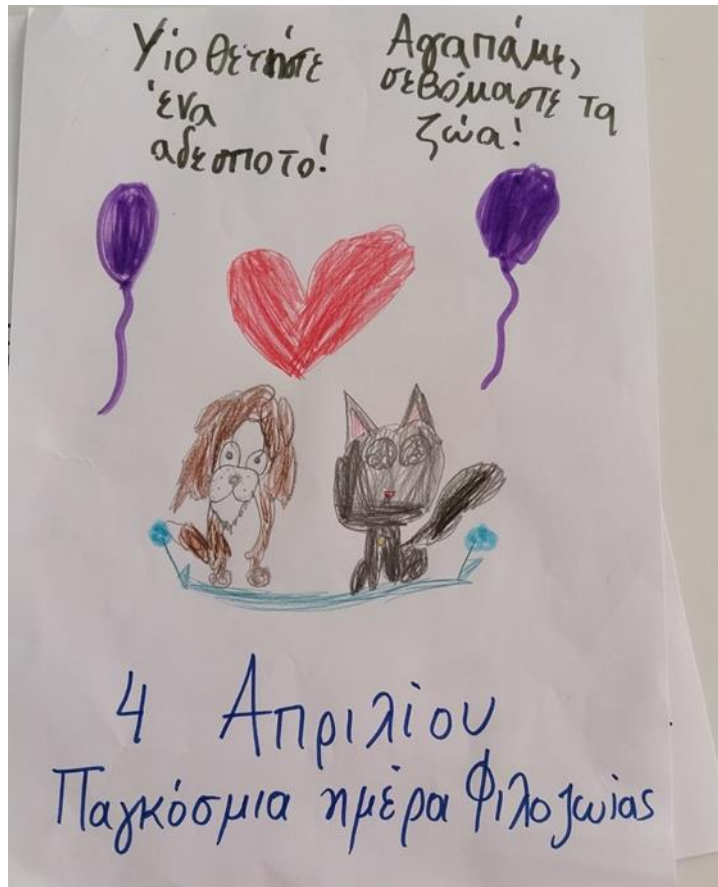 Υίοθετήστε
ένα
αδεσποτο!
Αγαπάμε,
σεβόμαστε τα
ζώα!
4 Απριλίου
Παγκόσμια ημέρα Φιλοζωίας